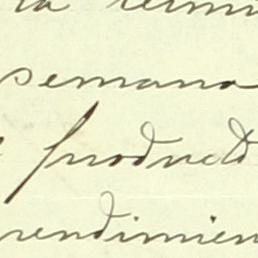 la reuni
semana
producto
rendimien